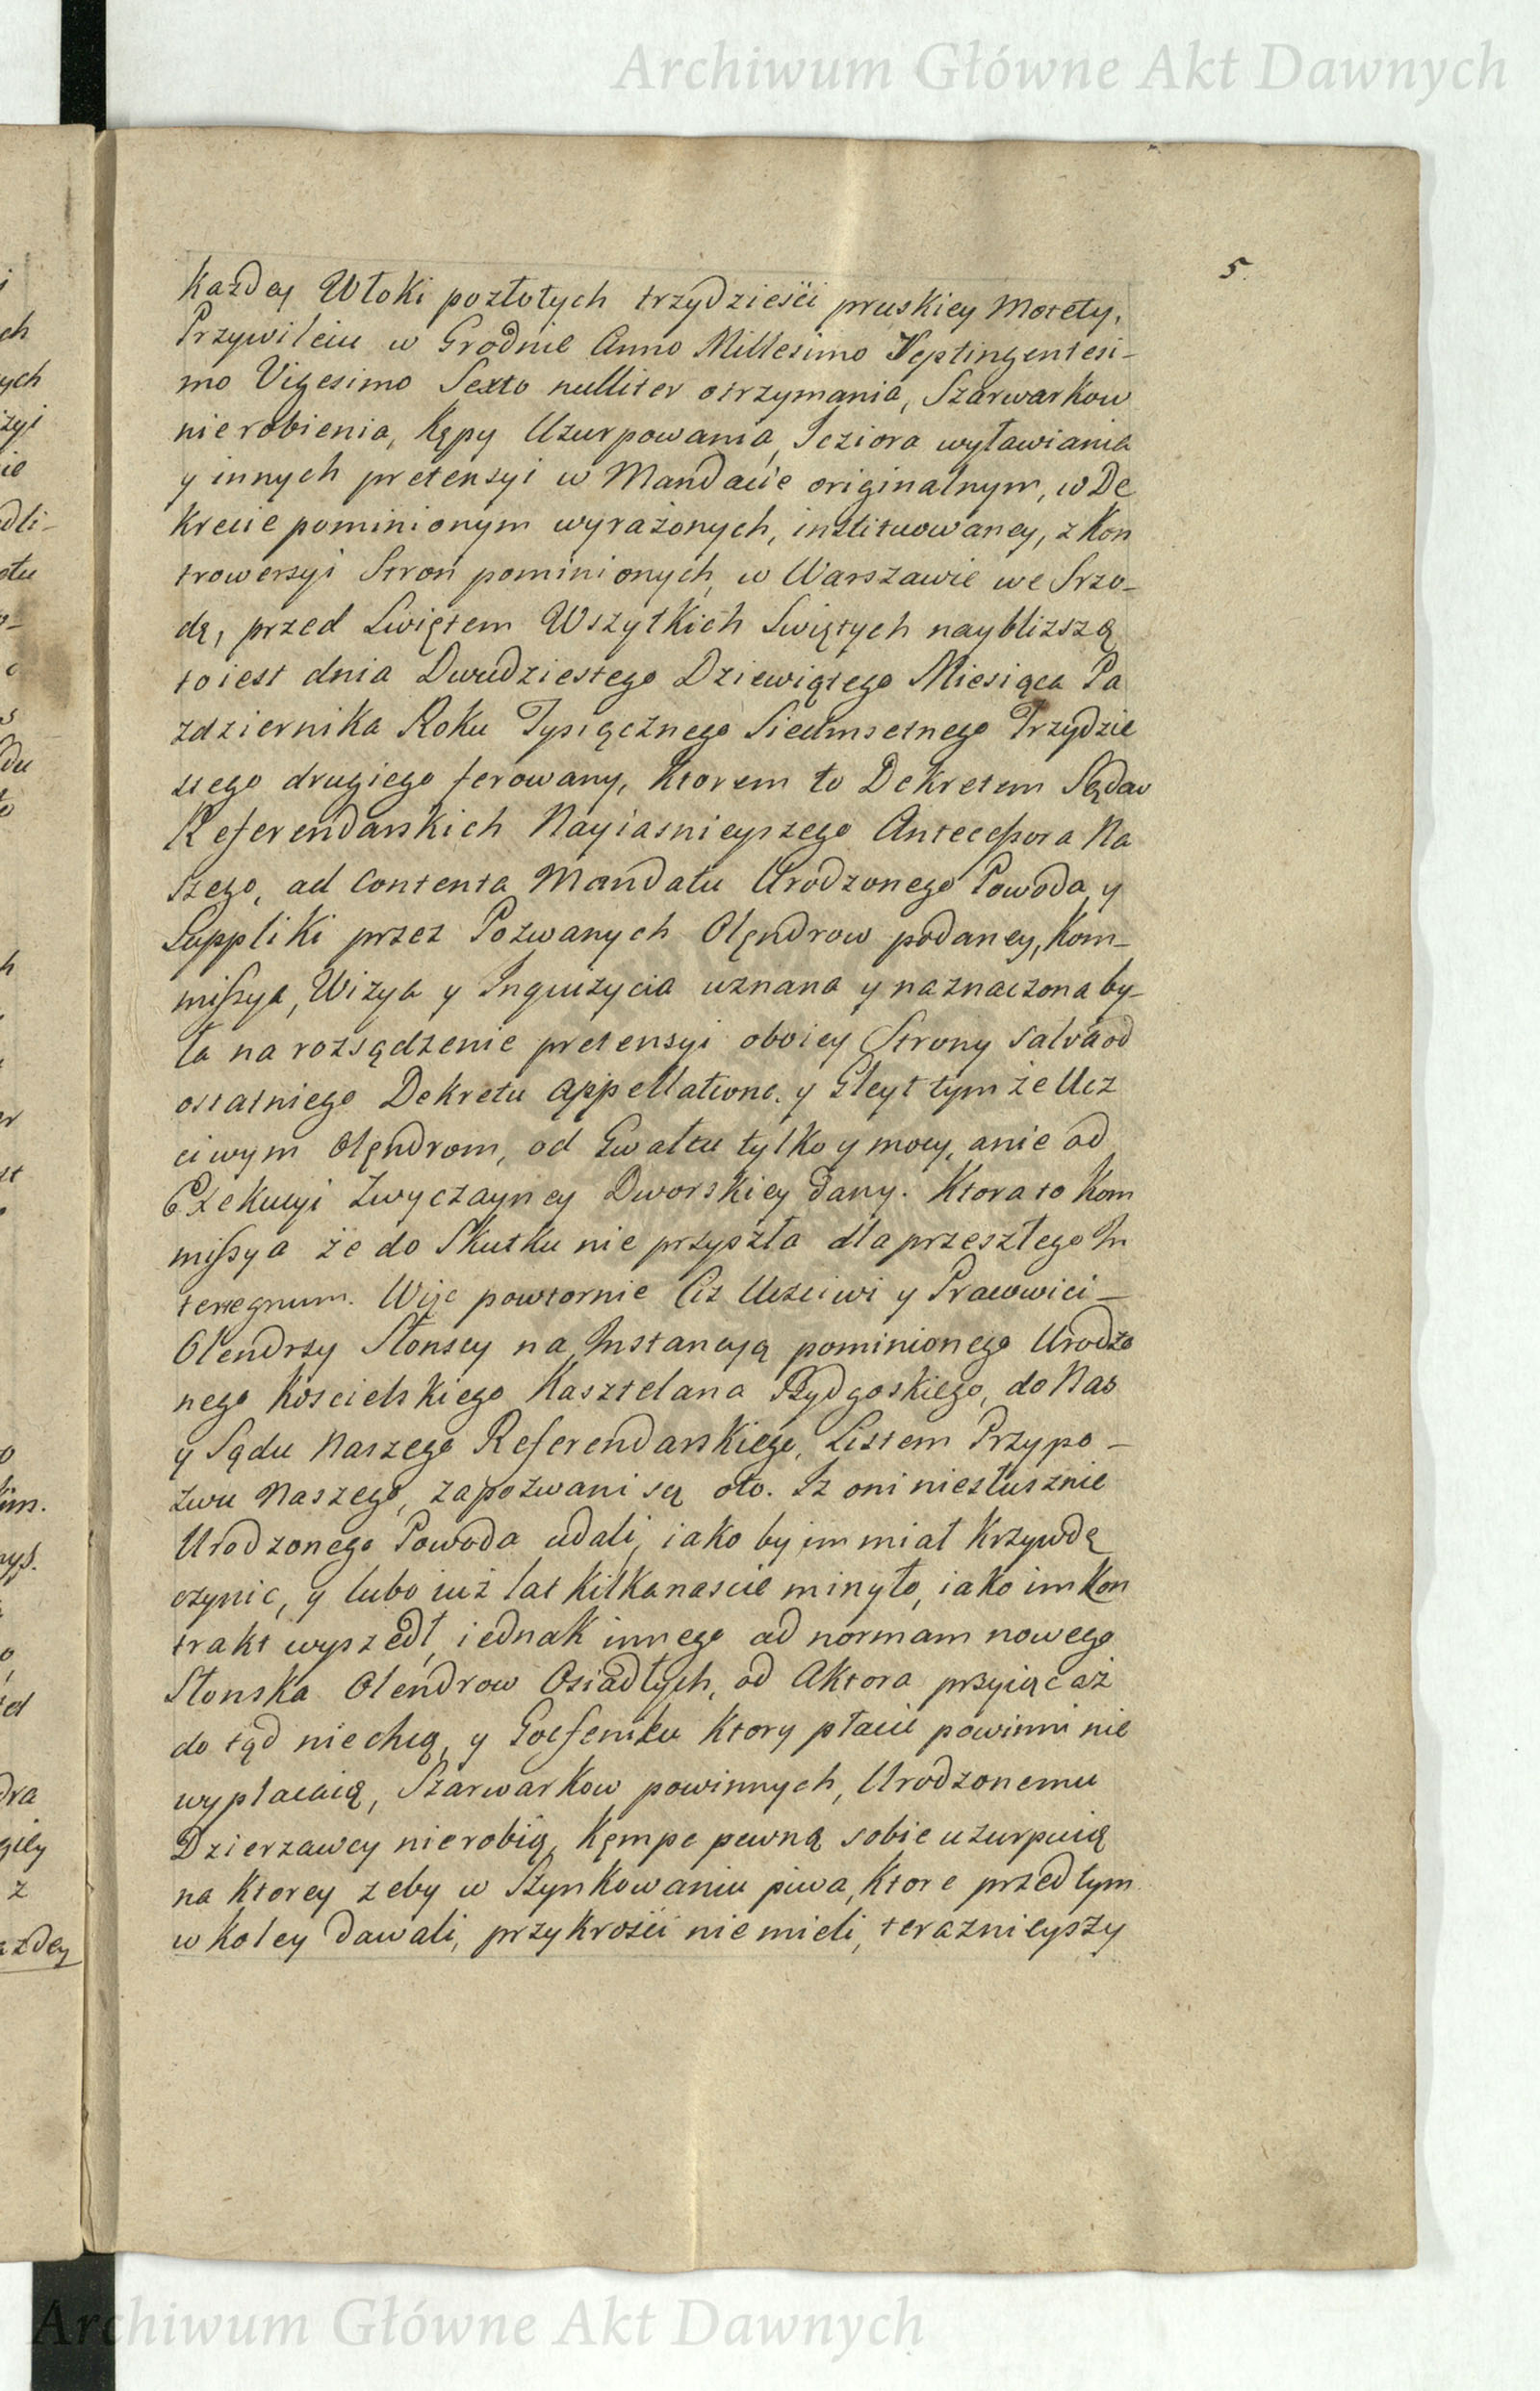 Archiwum Główne Akt Dawnych
5.
Każdey Włoki pozłotych trzydzieści pruskiey Monety,
Przywileiu w Grodnie Anno Millesimo Septingentesi-
mo Vigesimo Sexto nulliter otrzymania, Szarwarkow
nierobienia, Kępy Uzurpowania, Jeziora wyławiania
y innych pretensyi w Mandacie originalnym, w De
krecie pominionym wyrażonych, instituowaney, z Kon
trowersyi Stron pominionych, w Warszawie we Srzo-
dą, przed Swiętem Wszytkich Swiętych naybliższą
toiest dnia Dwudziestego Dziewiątego Miesiąca Pa
zdziernika Roku Tysiącznego Siedmsetnego Trzydzie
stego drugiego ferowany, Ktorem to Dekretem Sądow
Referendarskich Nayiasnieyszego Antecessora Na
szego, ad Contenta Mandatu Urodzonego Powoda, y
Suppliki przez Pozwanych Olęndrow podaney, Kom-
missya, Wizya y Inquizycia uznana y naznaczona by-
ła na rozsądzenie pretensyi oboiey Strony salva od
ostatniego Dekretu appellatione. y Gleyt tym że Ucz
ciwym Olęndrom, od Gwałtu tylko y mocy, anie od
Exekucyi Zwyczayney Dworskiey dany. Ktora to Kom
missya że do Skutku nie przyszła dla przeszłego In
terregnum. Więc powtornie Ciż Uczciwi y Pracowici-
Olendrzy Słonscy na Instancyą pominionego Urodzo
nego Koscielskiego Kasztelana Bydgoskiego, do Nas
y Sądu Naszego Referendarskiego, Listem Przypo-
zwu Naszego, zapozwani są oto. Iz oni niesłusznie
Urodzonego Powoda udali, iako by im miał Krzywdę
czynic, y lubo iuż lat Kilkanascie minęło, iako im Kon
trakt wyszedł, iednak innego ad normam nowego
Słonska Olendrow Osiadłych, od Aktora przyiąc aż
do tąd niechcą, y Goesceniku Ktory płacic powinni nie
wypłacaią, Szarwarkow powinnych, Urodzonemu
Dzierzawcy nierobią, Kęmpe pewną sobie uzurpuią
na Ktorey zeby w Szynkowaniu piwa, Ktore przed tym
w Koley dawali, przykrości nie mieli, teraznieyszy
Archiwum Główne Akt Dawnych